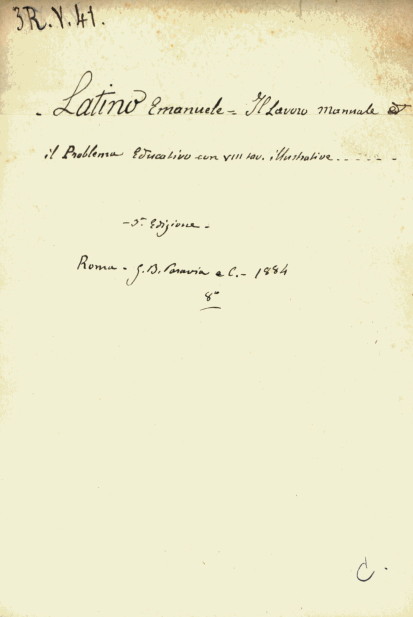 3R.V.41.
- Latino Emanuele = Il Lavoro manuale ed
il Problema Educativo con VIII tav. illustrative......
- 3ª Edizione -
Roma - G. B. Paravia e C. - 1884
8°
C.